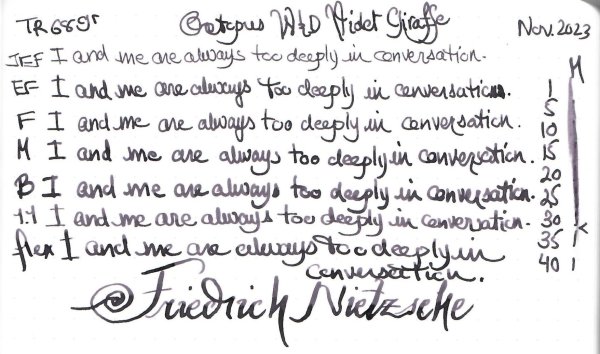 TR68gr Octopus W&D Violet Giraffe Nov. 2023
JEF I and me are always too deeply in conversation.
M
EF I and me are always too deeply in conversation. 1
5
F I and me are always too deeply in conversation. 10
M I and me are always too deeply in conversation. 15
20
B I and me are always too deeply in conversation. 25
1.1 I and me are always too deeply in conversation. 30
flex I and me are always too deeply in 35
conversation. 40
Friedrich Nietzsche